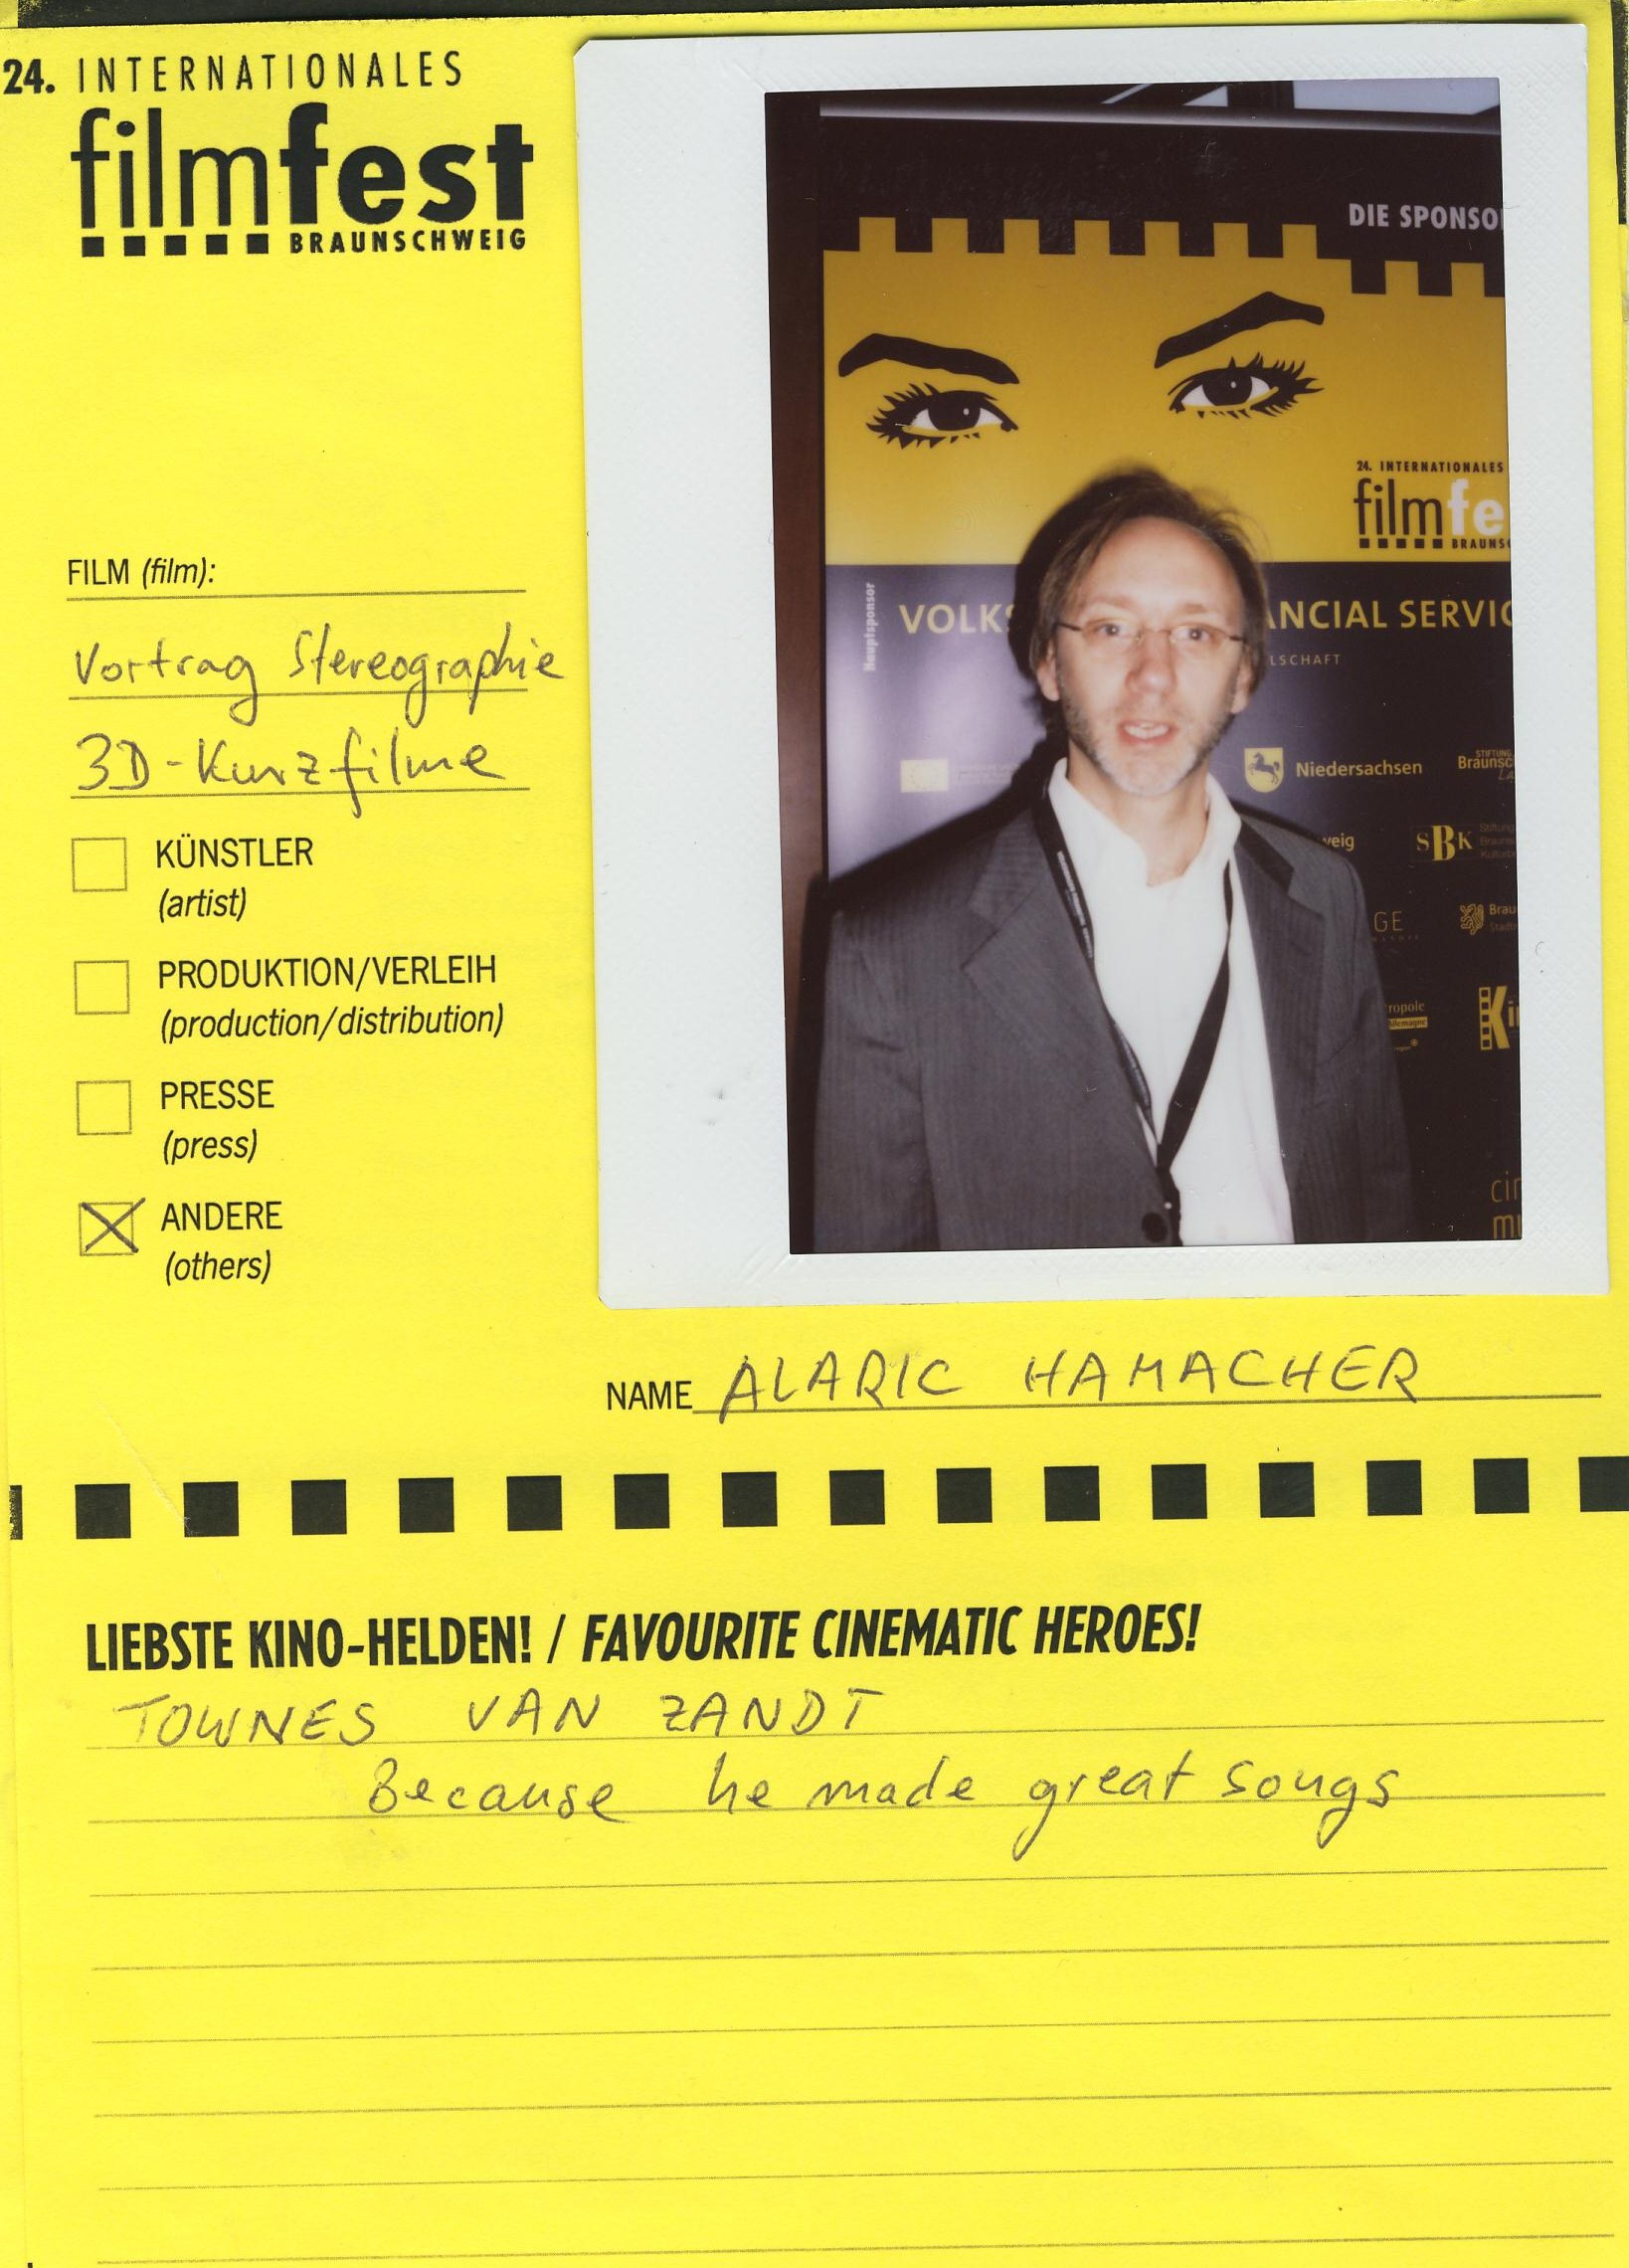 24. INTERNATIONALES
filmfest
BRAUNSCHWEIG
DIE SPONSO
24. INTERNATIONALES
filmfe
BRAUNS
Hauptsponsor
VOLKS ANCIAL SERVIC
LSCHAFT
Niedersachsen
STIFTUNG
Braunsc
La
weig
SBK
Stiftung
Brauns
GE
Brau
Stadt
ropole
Allemagne
Ki
cin
mu
FILM (film):
Vortrag Stereographie
3D-Kurzfilme
KÜNSTLER
(artist)
PRODUKTION/VERLEIH
(production/distribution)
PRESSE
(press)
ANDERE
(others)
NAME ALARIC HAMACHER
LIEBSTE KINO-HELDEN! / FAVOURITE CINEMATIC HEROES!
TOWNES VAN ZANDT
Because he made great songs